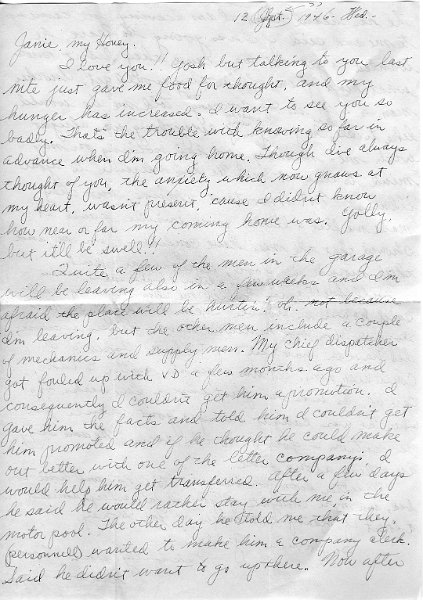 12 Sept. 1946. Wed.
Janie, my Honey.
I love you!! Gosh but talking to you last
nite just gave me food for thought, and my
hunger has increased. I want to see you so
badly. That's the trouble with knowing so far in
advance when I'm going home. Though I've always
thought of you, the anxiety, which now gnaws at
my heart, wasn't present, 'cause I didn't know
how near or far my coming home was. Golly,
but it'll be swell!!
Quite a few of the men in the garage
will be leaving also in a few weeks and I'm
afraid the place will be hurtin'. Oh, not because
I'm leaving, but the other men include a couple
of mechanics and supply men. My chief dispatcher
got fouled up with VD a few months ago and
consequently I couldn't get him a promotion. I
gave him the facts and told him I couldn't get
him promoted and if he thought he could make
out better with one of the letter company's I
would help him get transferred. After a few days
he said he would rather stay with me, in the
motor pool. The other day he told me that they,
(personnel) wanted to make him a company clerk.
Said he didn't want to go up there. Now after